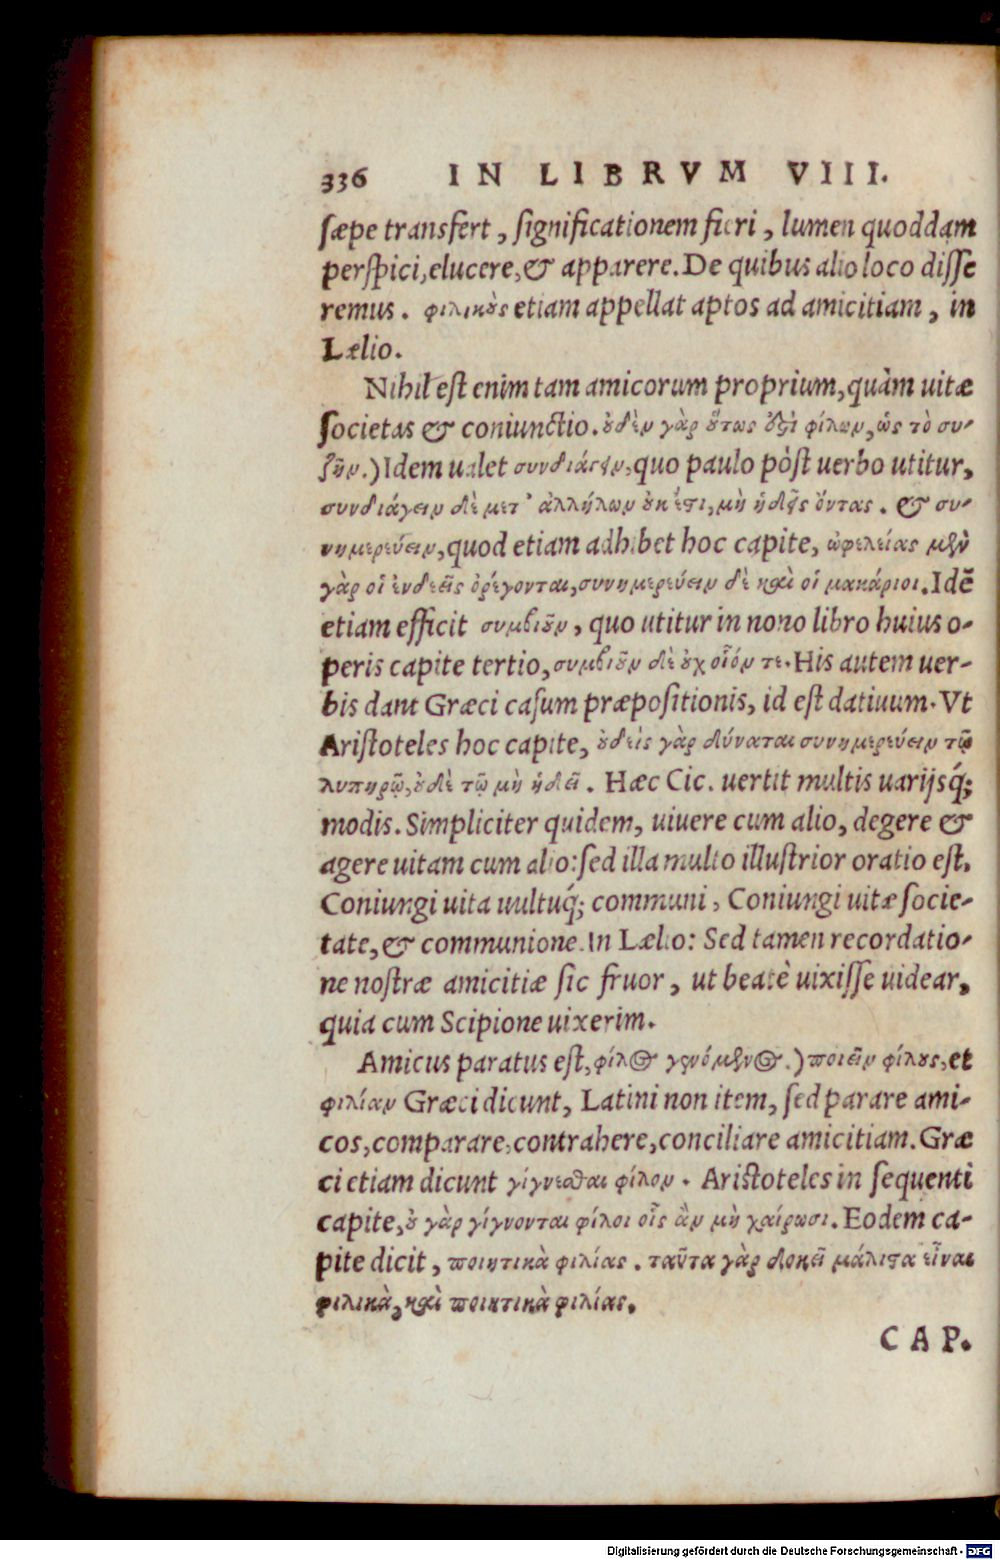 336 IN LIBRVM VIII.
sæpe transfert, significationem fieri, lumen quoddam
perspici, elucere, & apparere. De quibus alio loco disse
remus. φιλικοὺς etiam appellat aptos ad amicitiam, in
Lælio.
Nihil est enim tam amicorum proprium, quàm uitæ
societas & coniunctio. οὐδὲν γὰρ οὕτως ἐστὶ φίλων, ὡς τὸ συ-
ζῆν.) Idem ualet συνδιάγειν, quo paulo pòst uerbo utitur,
συνδιάγειν δὲ μετ' ἀλλήλων οὐκ ἔστι, μὴ ἡδεῖς ὄντας. & συ-
νημερεύειν, quod etiam adhibet hoc capite, ὠφελείας μὲν
γὰρ οἱ ἐνδεεῖς ὀρέγονται, συνημερεύειν δὲ καὶ οἱ μακάριοι. Idē
etiam efficit συμβιοῦν, quo utitur in nono libro huius o-
peris capite tertio, συμβιοῦν δὲ οὐχ οἷόν τε. His autem uer-
bis dant Græci casum præpositionis, id est datiuum. Vt
Aristoteles hoc capite, οὐδεὶς γὰρ δύναται συνημερεύειν τῷ
λυπηρῷ, οὐδὲ τῷ μὴ ἡδεῖ. Hæc Cic. uertit multis uarijsq́;
modis. Simpliciter quidem, uiuere cum alio, degere &
agere uitam cum alio: sed illa multo illustrior oratio est.
Coniungi uita uultuq́; communi, Coniungi uitæ socie-
tate, & communione. In Lælio: Sed tamen recordatio-
ne nostræ amicitiæ sic fruor, ut beatè uixisse uidear,
quia cum Scipione uixerim.
Amicus paratus est, φίλος γενόμενος.) ποιεῖν φίλους, et
φιλίαν Græci dicunt, Latini non item, sed parare ami-
cos, comparare, contrahere, conciliare amicitiam. Græ
ci etiam dicunt γίγνεσθαι φίλον. Aristoteles in sequenti
capite, οὐ γὰρ γίγνονται φίλοι οἷς ἂν μὴ χαίρωσι. Eodem ca-
pite dicit, ποιητικὰ φιλίας. ταῦτα γὰρ δοκεῖ μάλιστα εἶναι
φιλικὰ, καὶ ποιητικὰ φιλίας.
CAP.
Digitalisierung gefördert durch die Deutsche Forschungsgemeinschaft - DFG